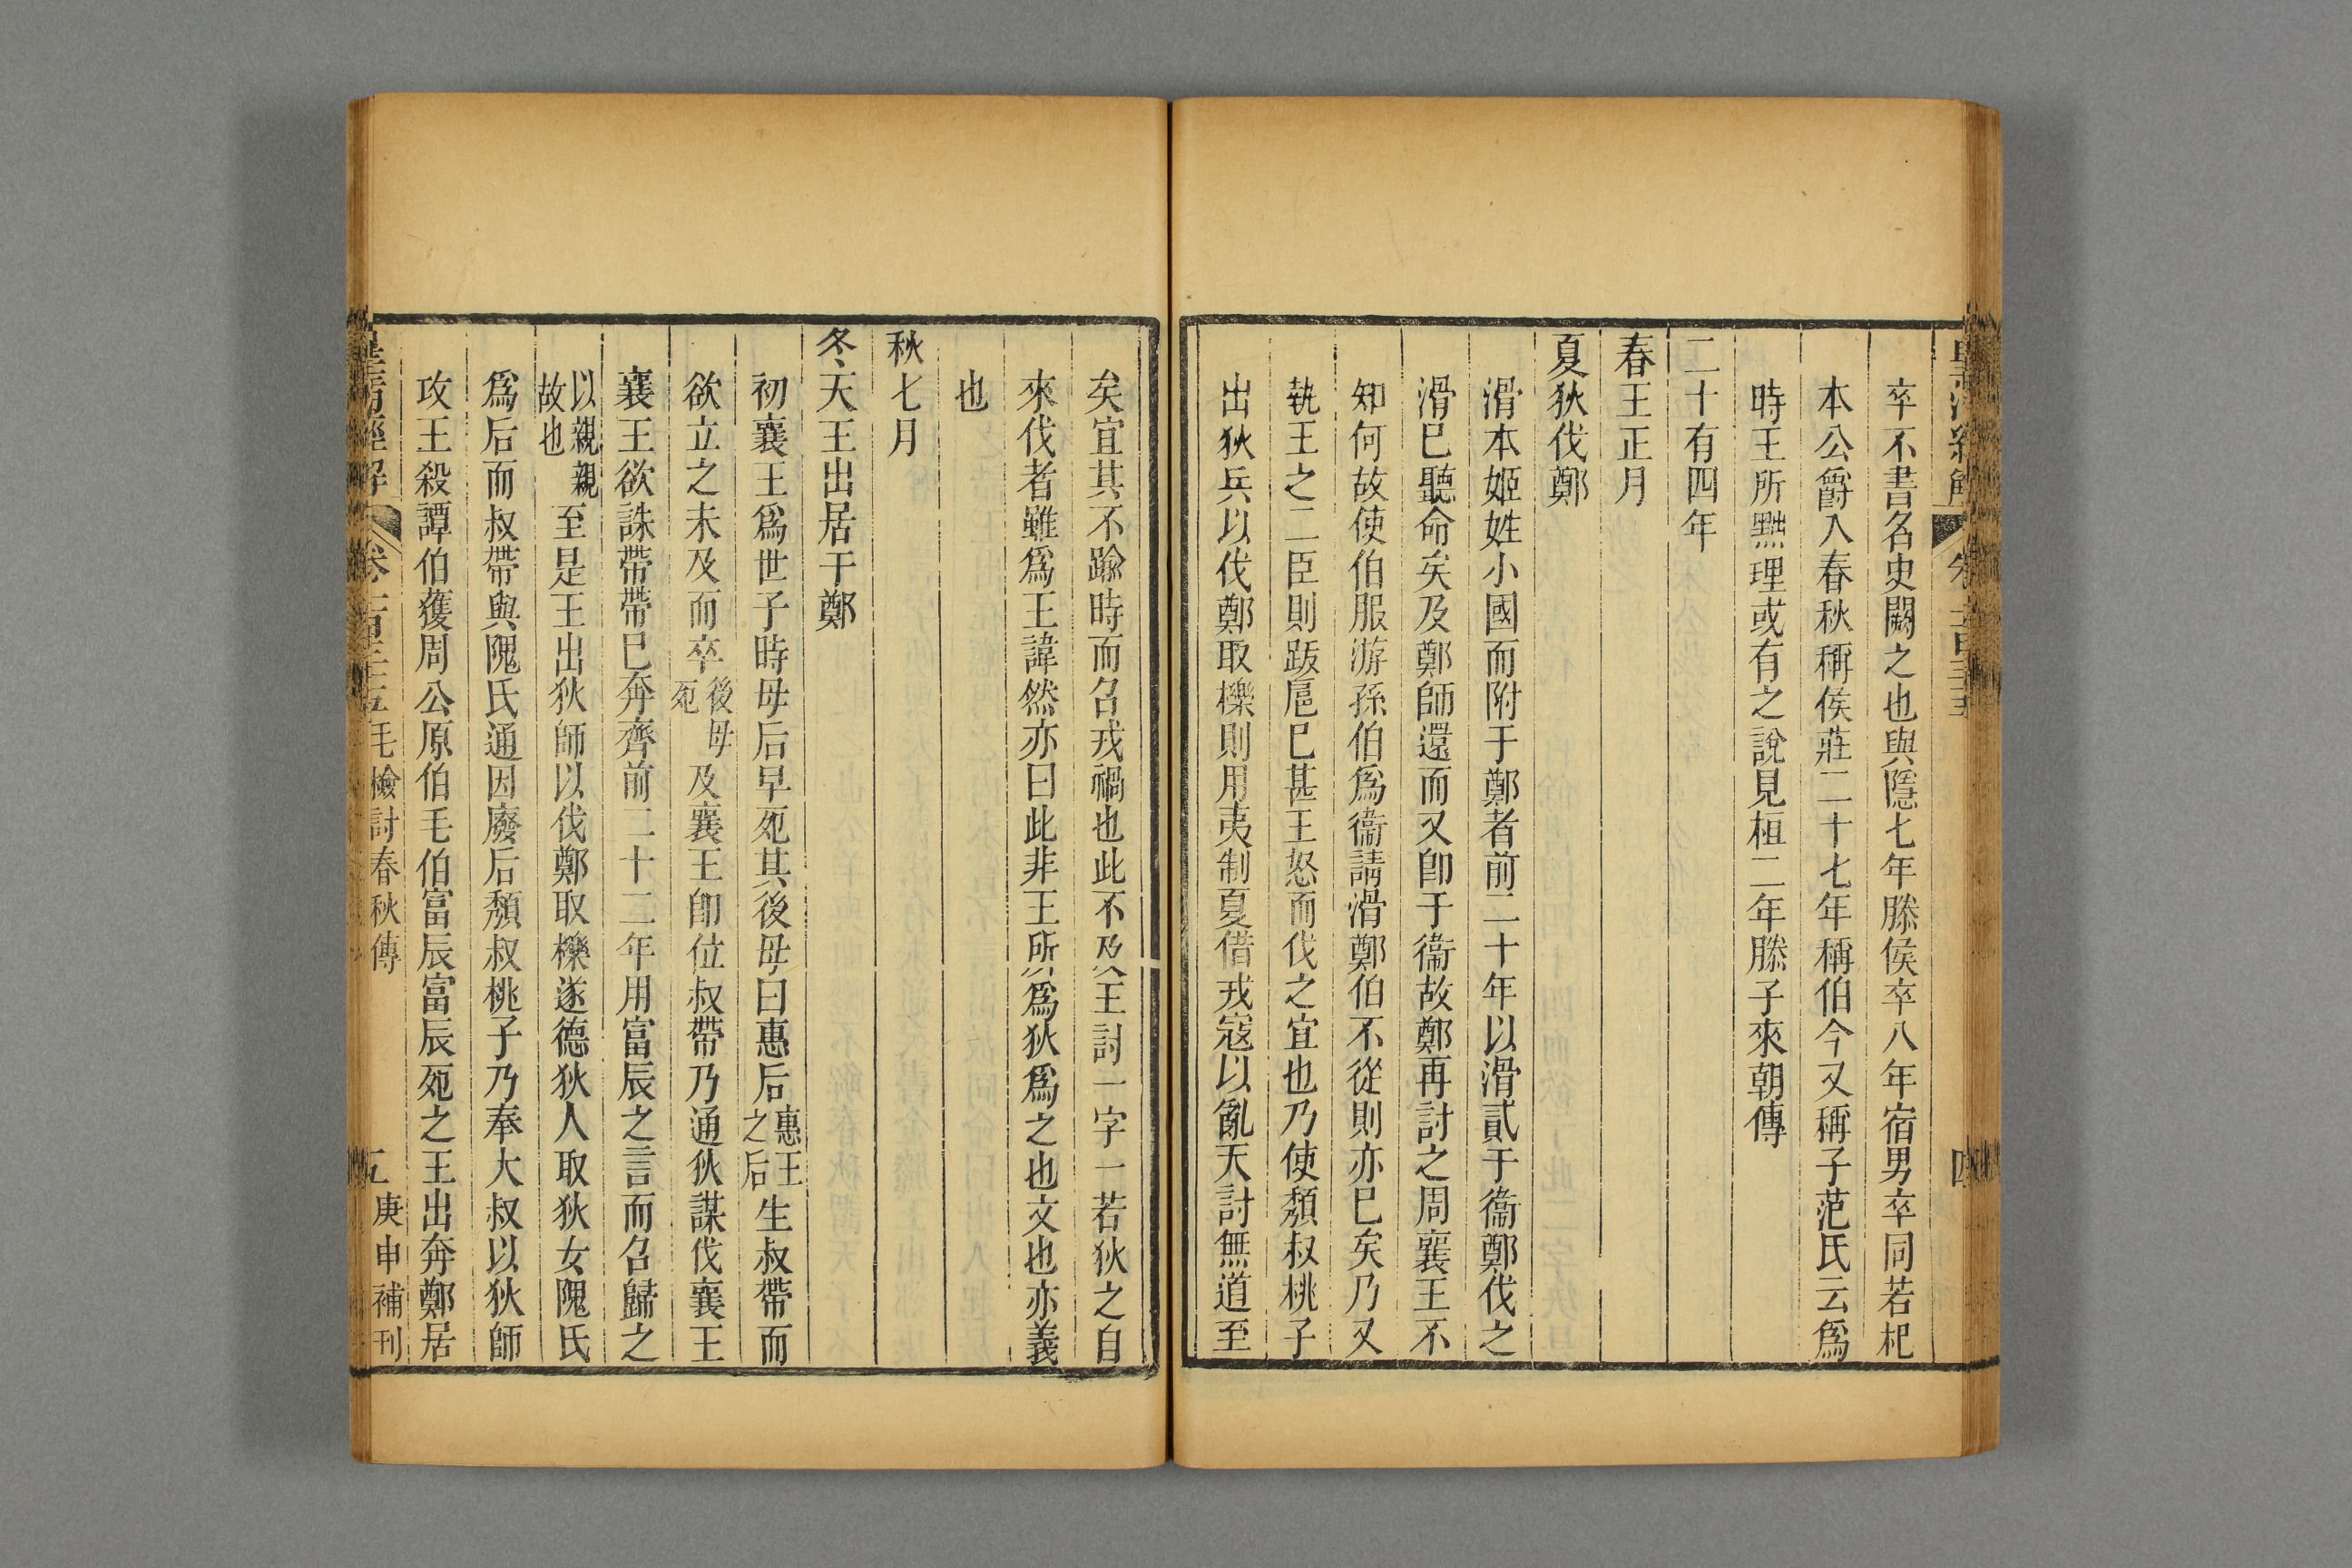 卒不書名史闕之也與隱七年滕侯卒八年宿男卒同若杞
本公爵入春秋稱侯莊二十七年稱伯今又稱子范氏云爲
時王所黜理或有之說見桓二年滕子來朝傳
二十有四年
春王正月
夏狄伐鄭
滑本姬姓小國而附于鄭者前二十年以滑貳于衞鄭伐之
滑已聽命矣及鄭師還而又卽于衞故鄭再討之周襄王不
知何故使伯服游孫伯爲衞請滑鄭伯不從則亦已矣乃又
執王之二臣則跋扈已甚王怒而伐之宜也乃使頹叔桃子
出狄兵以伐鄭取櫟則用夷制夏借戎寇以亂天討無道至
矣宜其不踰時而召戎禍也此不及王討一字一若狄之自
來伐者雖爲王諱然亦曰此非王所爲狄爲之也文也亦義
也
秋七月
冬天王出居于鄭
初襄王爲世子時母后早死其後母曰惠后惠王之后生叔帶而
欲立之未及而卒後母死及襄王卽位叔帶乃通狄謀伐襄王
襄王欲誅帶帶已奔齊前二十二年用富辰之言而召歸之
以親親故也至是王出狄師以伐鄭取櫟遂德狄人取狄女隗氏
爲后而叔帶與隗氏通因廢后頹叔桃子乃奉大叔以狄師
攻王殺譚伯獲周公原伯毛伯富辰富辰死之王出奔鄭居
皇淸經解 卷一百三十五 毛檢討春秋傳 五 庚申補刊